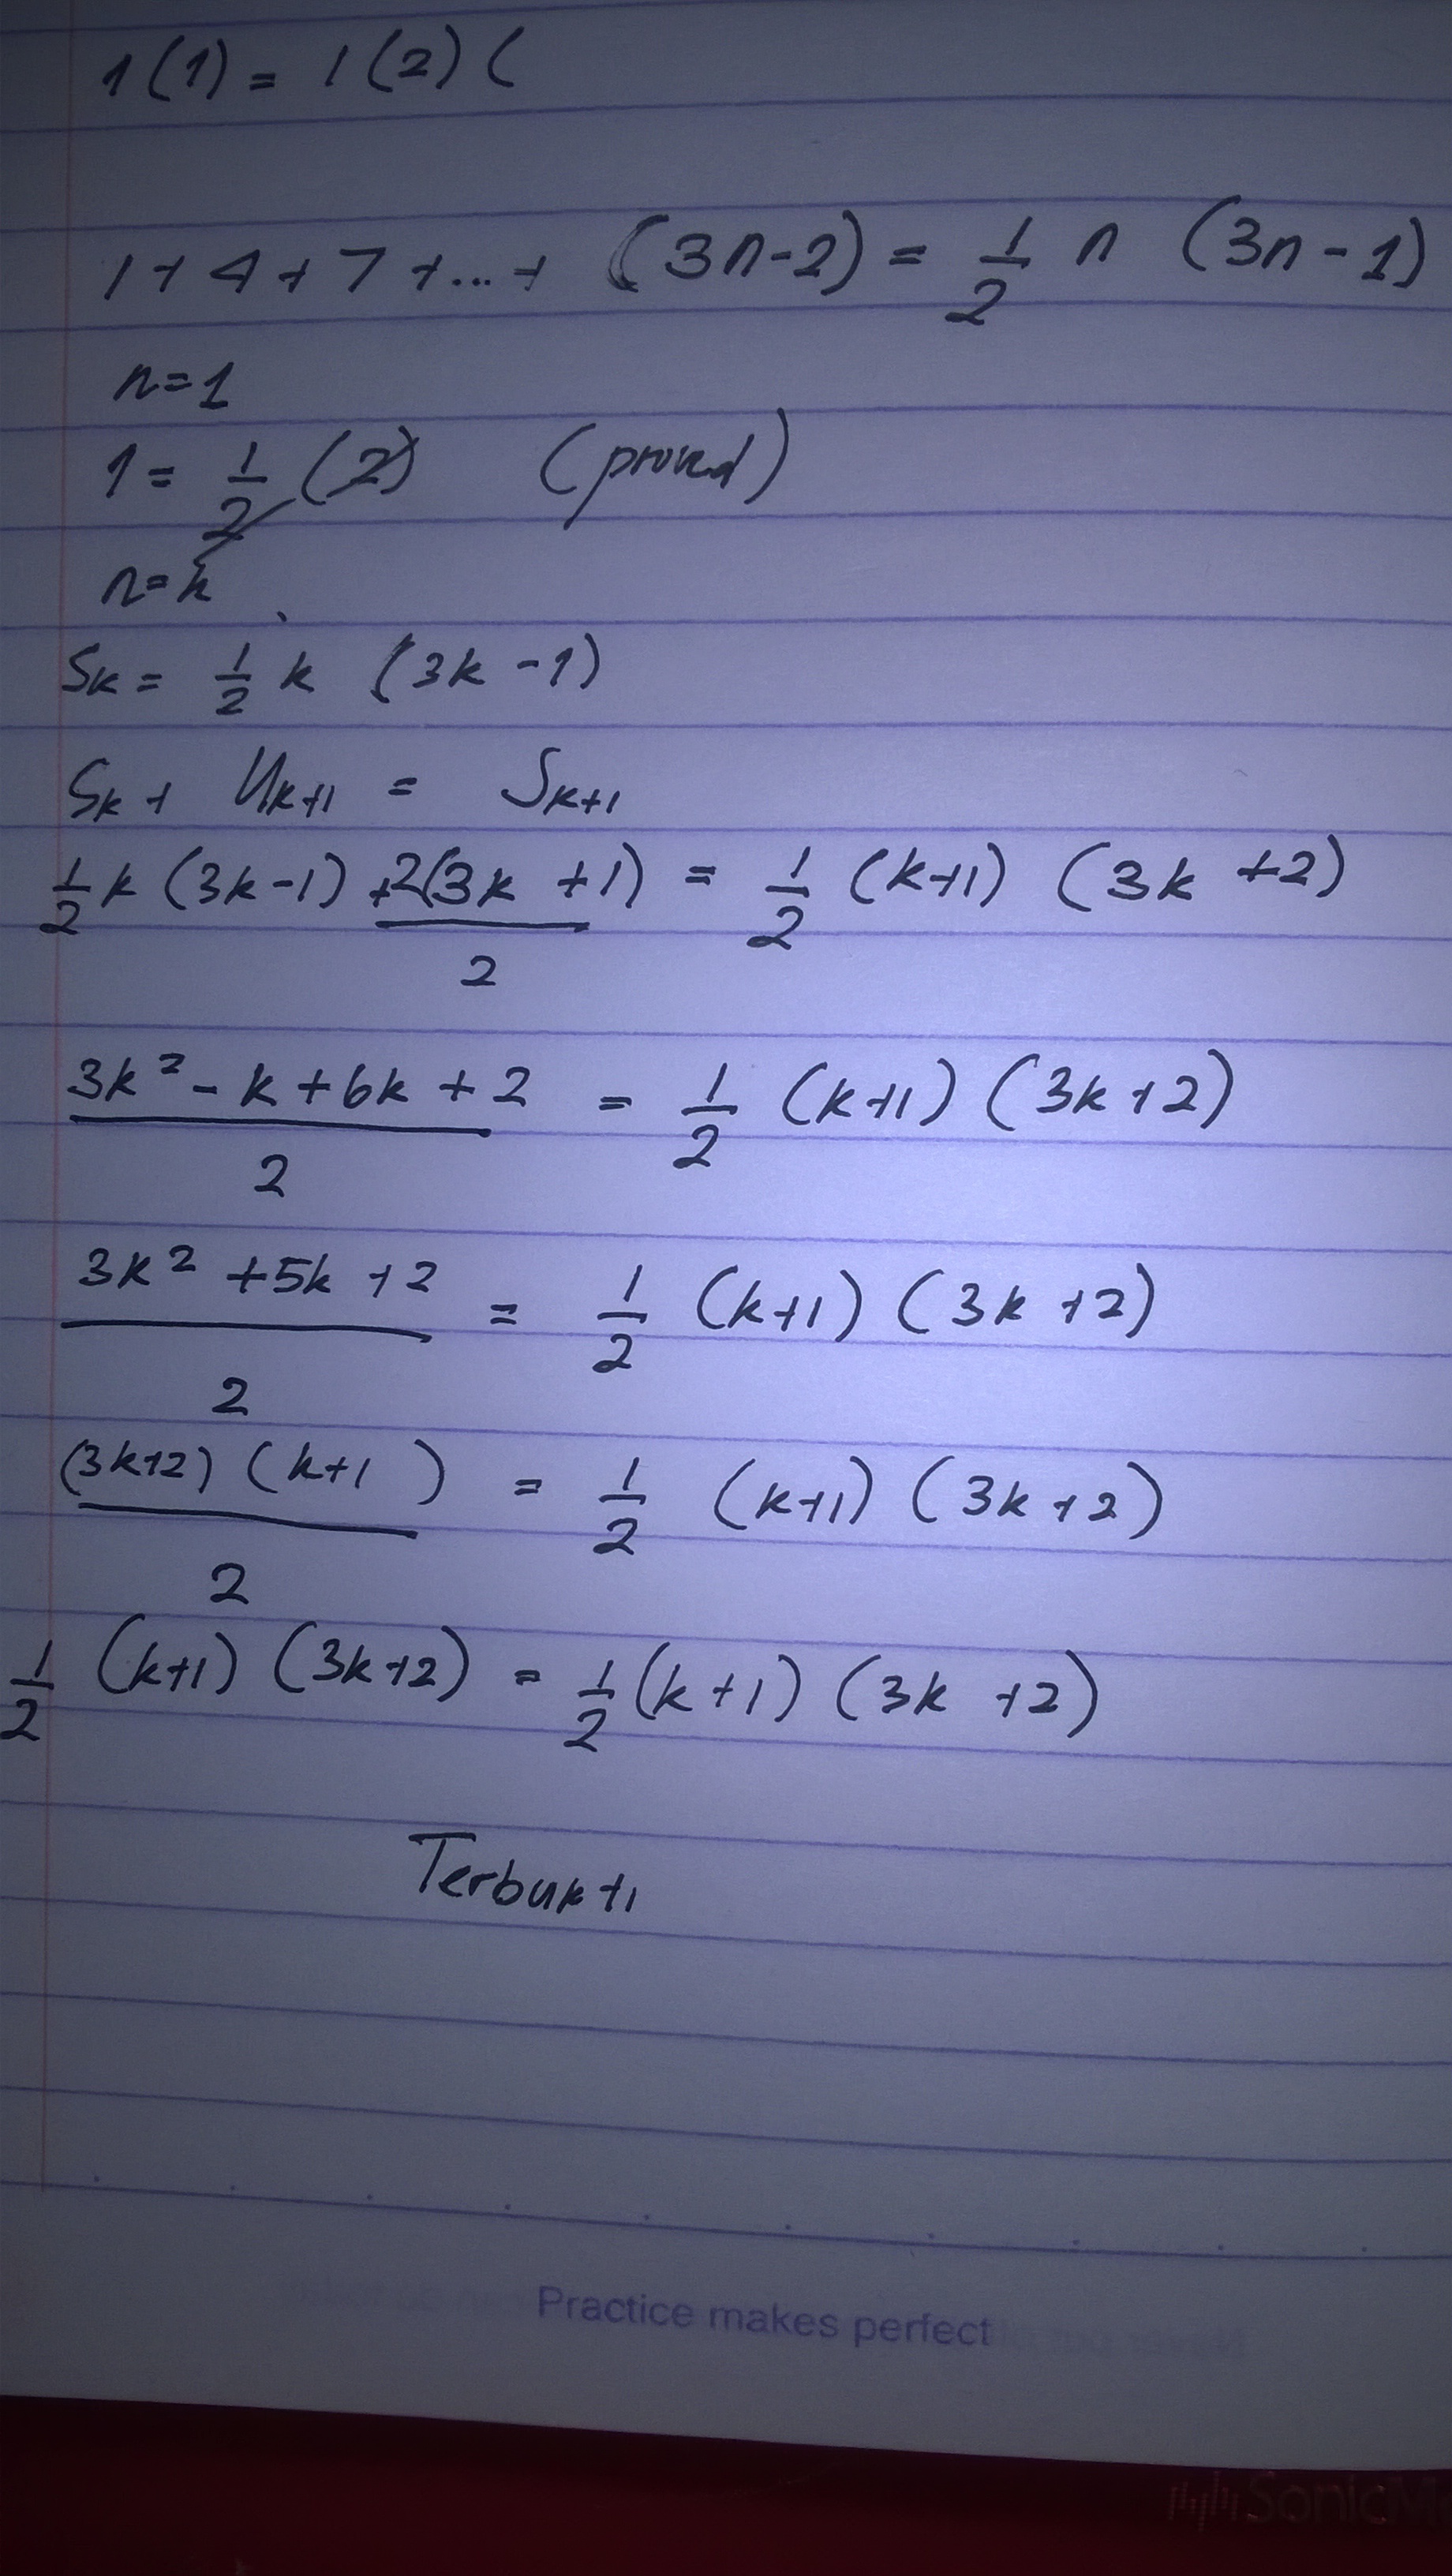 1(1) = 1(2)(
1 + 4 + 7 + ... + (3n-2) = 1/2 n (3n-1)
n=1
1 = 1/2 (2) (proved)
n=k
Sk = 1/2 k (3k-1)
Sk + Uk+1 = Sk+1
1/2 k (3k-1) + 2(3k+1)/2 = 1/2 (k+1) (3k+2)
3k² - k + 6k + 2 / 2 = 1/2 (k+1) (3k+2)
3k² + 5k + 2 / 2 = 1/2 (k+1) (3k+2)
(3k+2) (k+1) / 2 = 1/2 (k+1) (3k+2)
1/2 (k+1) (3k+2) = 1/2 (k+1) (3k+2)
Terbukti
Practice makes perfect